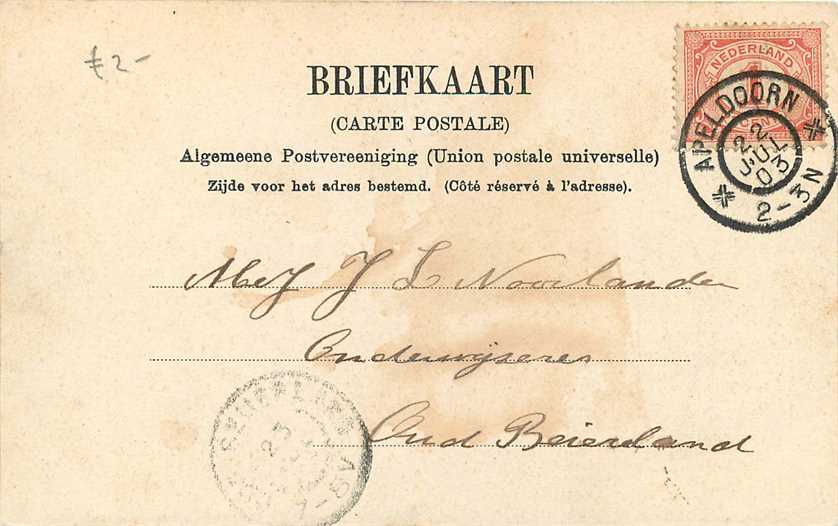 £ 2-
BRIEFKAART
(CARTE POSTALE)
Algemeene Postvereeniging (Union postale universelle)
Zijde voor het adres bestemd. (Côté réservé à l'adresse).
NEDERLAND
1
CENT
APELDOORN
22
JUL
03
2-3N
Mej J L Noorlander
Onderwijzeres
Oud Beierland
23